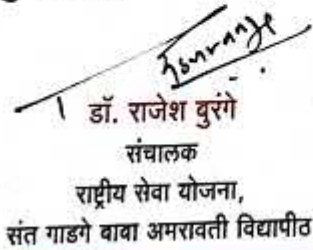 डॉ. राजेश बुरंगे
संचालक
राष्ट्रीय सेवा योजना,
संत गाडगे बाबा अमरावती विद्यापीठ